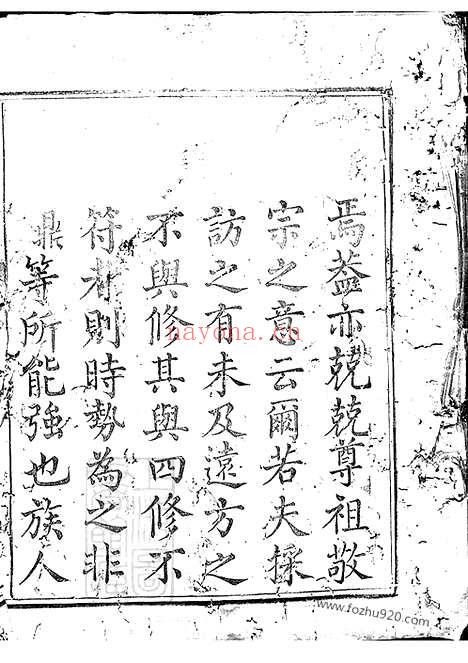 焉葢亦兢兢尊祖敬
宗之意云爾若夫採
訪之有未及遠方之
不與修其與四修不
符者則時勢為之非
鼎等所能強也族人
nayona.cn
www.fozhu920.com